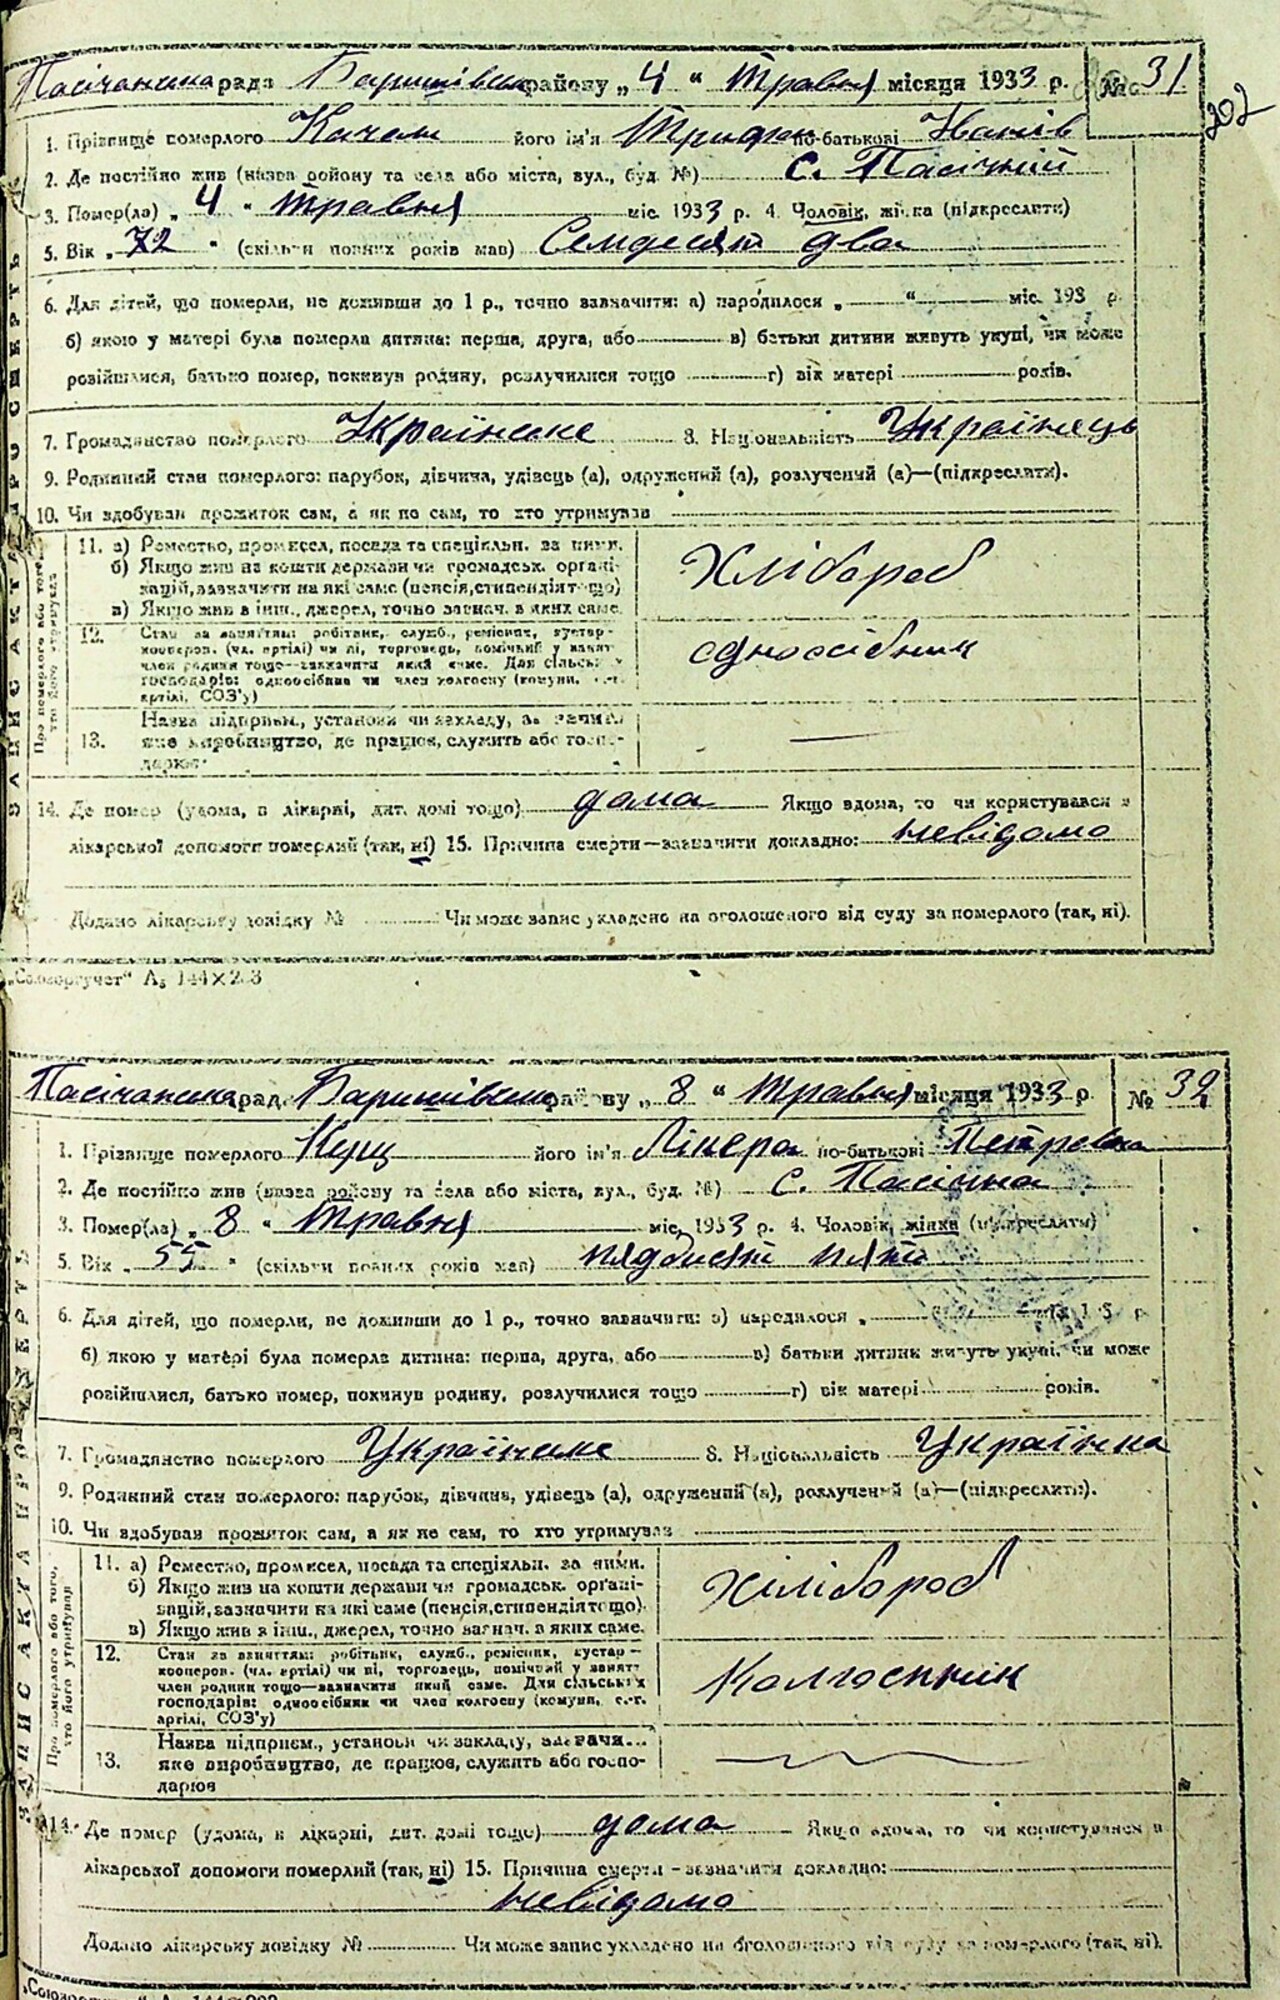 Пасічанська рада Баришівськ району „ 4 “ Травня місяця 1933 р. № 31
202
1. Прізвище померлого Качан його ім'я по-батькові Іванів
2. Де постійно жив (назва району та села або міста, вул., буд. №) с. Пасічній
3. Помер(ла) „ 4 “ Травня міс. 1933 р. 4. Чоловік, жінка (підкреслити)
5. Вік „ 72 “ (скільки повних років мав) Семдесят два
6. Для дітей, що померли, не доживши до 1 р., точно зазначити: а) народилося „ “ міс. 193 р.
б) якою у матері була померла дитина: перша, друга, або в) батьки дитини живуть укупі, чи може
розійшлися, батько помер, покинув родину, розлучилися тощо г) вік матері років.
7. Громадянство померлого Українське 8. Національність Українець
9. Родинний стан померлого: парубок, дівчина, удівець (а), одружений (а), розлучений (а)—(підкреслити).
10. Чи здобував прожиток сам, а як не сам, то хто утримував
ЗАПИС АКТА ПРО СМЕРТЬ
Про померлого або того, хто його утримував
11. а) Ремество, промисел, посада та спеціяльн. за ними.
б) Якщо жив на кошти держави чи громадськ. органі-
зацій, зазначити на які саме (пенсія, стипендія тощо)
в) Якщо жив з інш., джерел, точно зазнач. з яких саме.
Хлібороб
12. Стан за заняттям: робітник, служб., ремісник, кустар-
кооперов. (чл. артілі) чи ні, торговець, помічний у занят.
член родини тощо—зазначити який саме. Для сільськ.
господарів: одноосібник чи член колгоспу (комуни, с.-г.
артілі, СОЗ'у)
одноосібник
13. Назва підприєм., установи чи закладу, зазначи...
яке виробництво, де працює, служить або госпо-
дарює
14. Де помер (удома, в лікарні, дит. домі тощо) дома Якщо вдома, то чи користувався з
лікарської допомоги померлий (так, ні) 15. Причина смерти—зазначити докладно: невідомо
Додано лікарську довідку № Чи може запис укладено на оголошеного від суду за померлого (так, ні).
„Союзоргучет“ А5 144×203
Пасічанська рад Баришівськ району „ 8 “ Травня місяця 1933 р № 32
1. Прізвище померлого Куц його ім'я по-батькові Петровна
2. Де постійно жив (назва району та села або міста, вул., буд. №) с. Пасічна
3. Помер(ла) „ 8 “ Травня міс. 1933 р. 4. Чоловік, жінка (підкреслити)
5. Вік „ 55 “ (скільки повних років мав) пядьдесят пять
6. Для дітей, що померли, не доживши до 1 р., точно зазначити: а) народилося „
б) якою у матері була померла дитина: перша, друга, або в) батьки дитини живуть укупі, чи може
розійшлися, батько помер, покинув родину, розлучилися тощо г) вік матері років.
7. Громадянство померлого Українське 8. Національність Українка
9. Родинний стан померлого: парубок, дівчина, удівець (а), одружений (а), розлучений (а)—(підкреслити).
10. Чи здобував прожиток сам, а як не сам, то хто утримував
ЗАПИС АКТА ПРО СМЕРТЬ
Про померлого або того, хто його утримував
11. а) Ремество, промисел, посада та спеціяльн. за ними.
б) Якщо жив на кошти держави чи громадськ. органі-
зацій, зазначити на які саме (пенсія, стипендія тощо).
в) Якщо жив з інш., джерел, точно зазнач. з яких саме.
Хлібороб
12. Стан за заняттям: робітник, служб., ремісник, кустар—
кооперов. (чл. артілі) чи ні, торговець, помічний у занят.
член родини тощо—зазначити який саме. Для сільських
господарів: одноосібник чи член колгоспу (комуни, с.-г.
артілі, СОЗ'у)
Колгоспник
13. Назва підприєм., установи чи закладу, зазначи...
яке виробництво, де працює, служить або госпо-
дарює
14. Де помер (удома, в лікарні, дит. домі тощо) дома Якщо вдома, то чи користувався з
лікарської допомоги померлий (так, ні) 15. Причина смерти—зазначити докладно:
невідомо
Додано лікарську довідку № Чи може запис укладено на оголошеного від суду за померлого (так, ні).